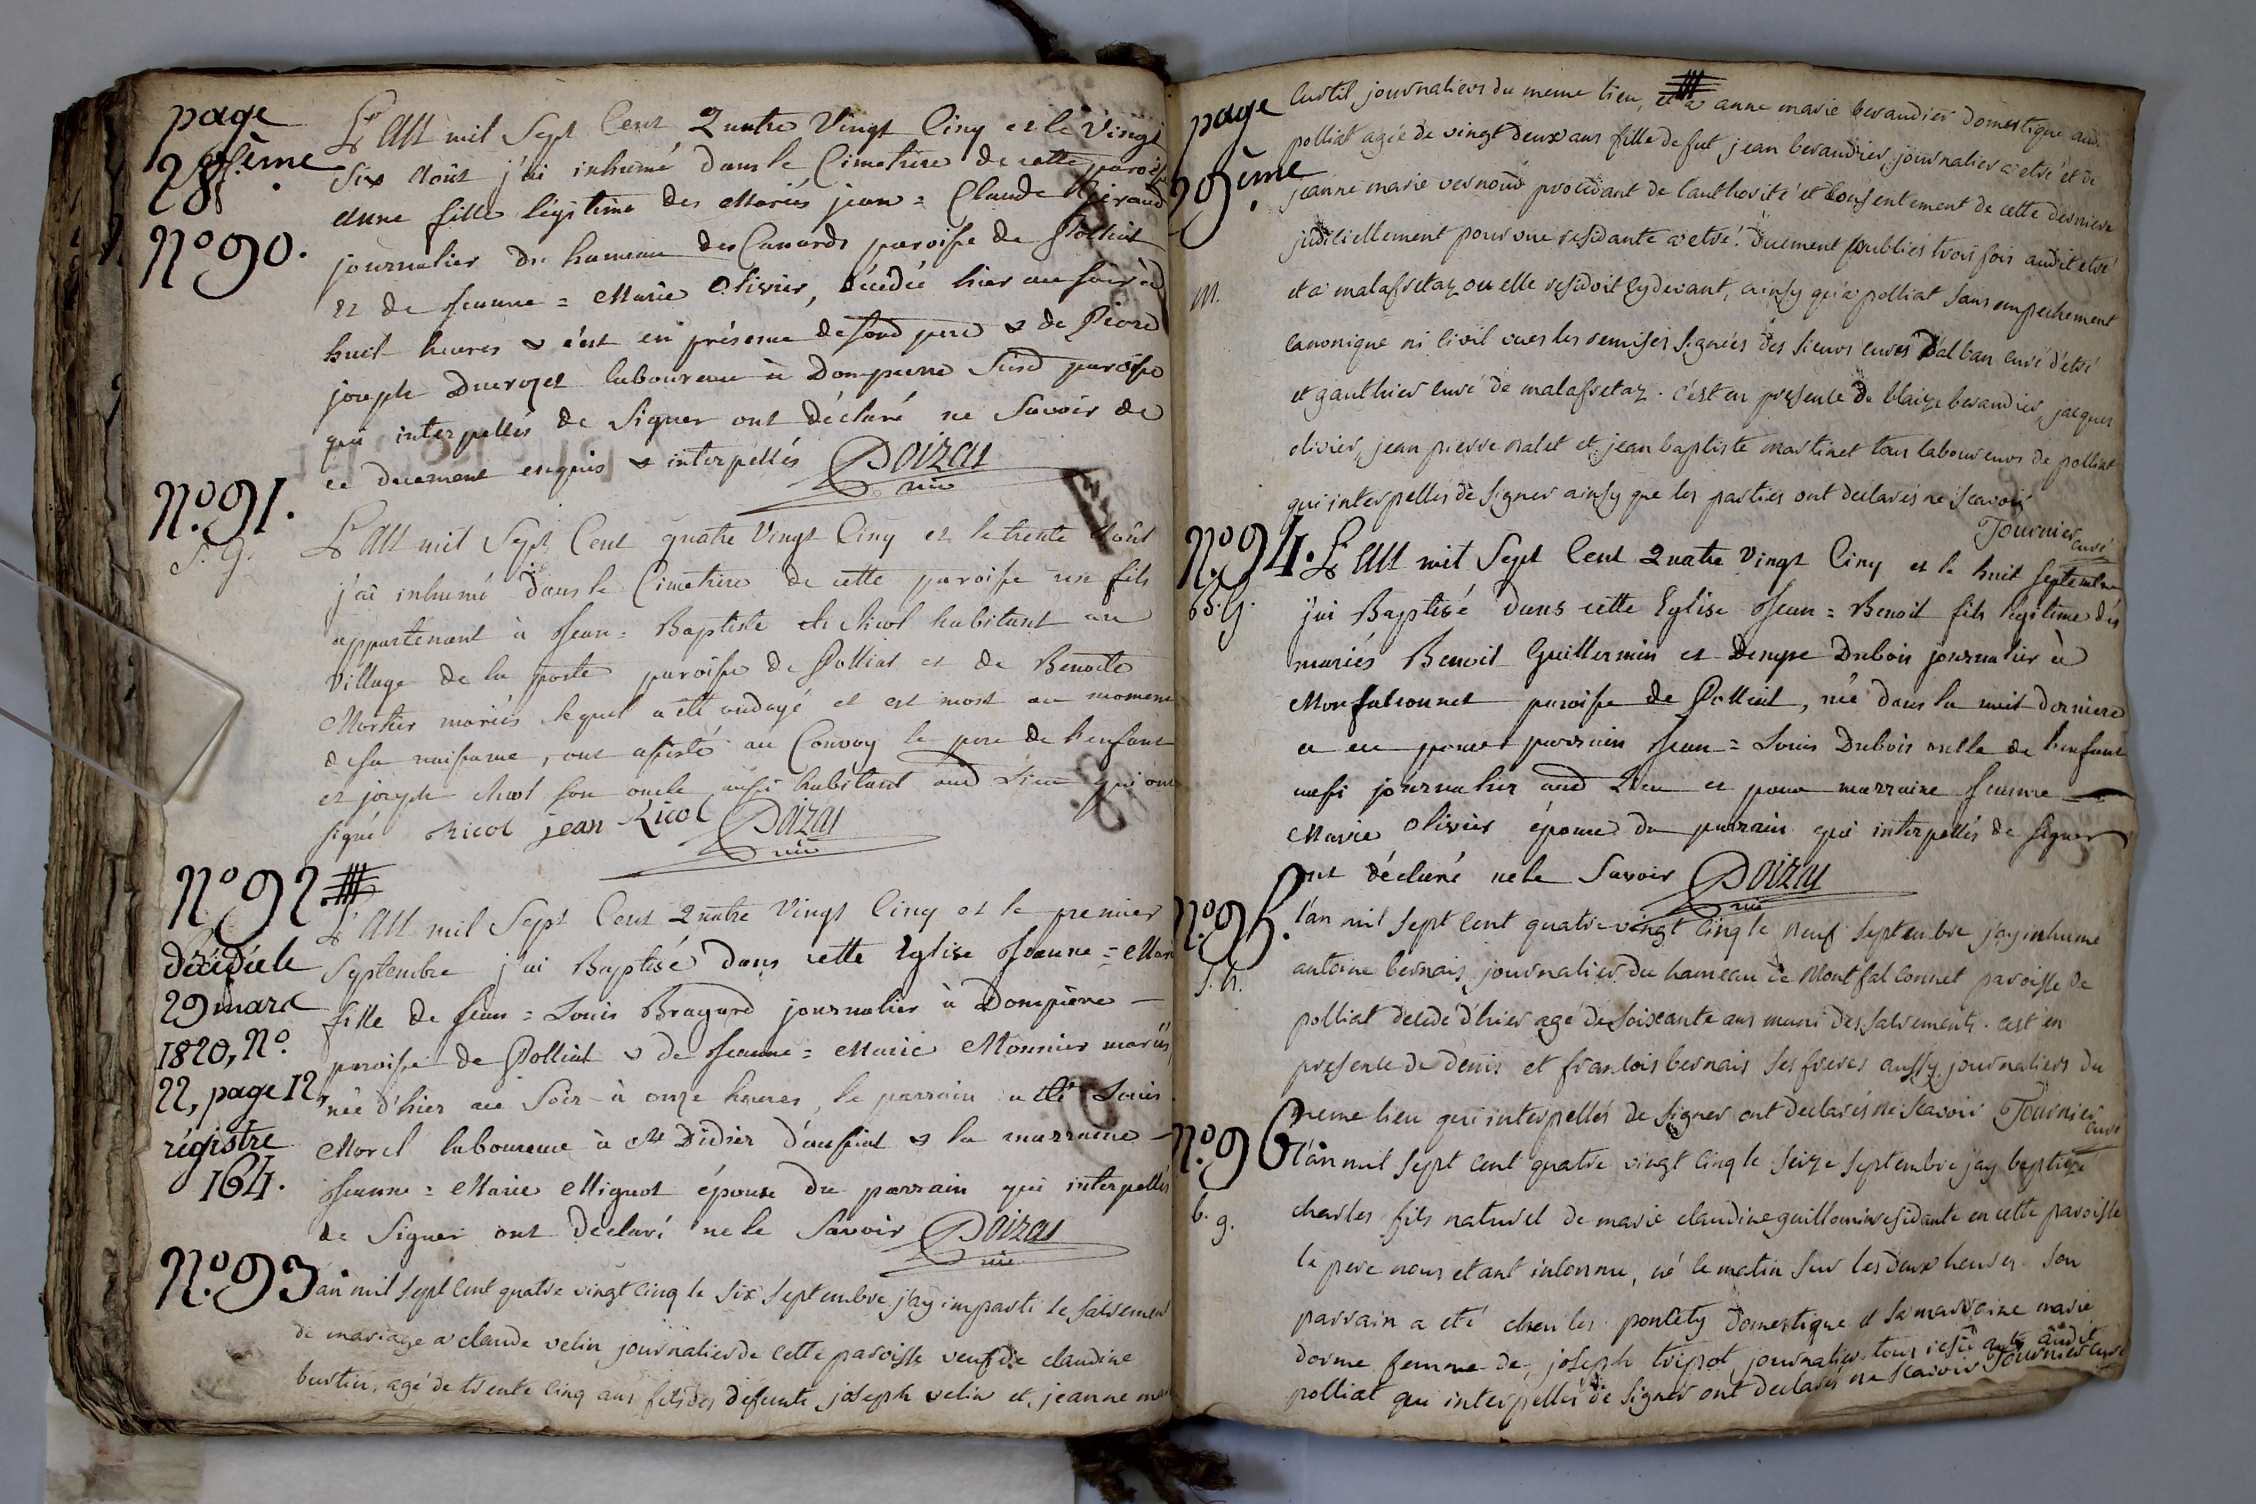 page
28ème
N° 90.
L'an mil Sept Cent Quatre Vingt Cinq et le Vingt
Six Août j'ai inhumé dans le Cimetière de cette paroisse
Anne fille légitime des Mariés jean = Claude
journalier du hameau des Canards paroisse de Polliat
et de Jeanne = Marie Olivier, décédée hier au soir à
huit heures & c'est en présence de sond pere & de Pierre
joseph laboureur à Dompierre Susd paroisse
qui interpellés de Signer ont déclaré ne Savoir de
ce duement enquis & interpellés Poizat
N° 91.
S. G.
L'an mil Sept Cent quatre Vingt Cinq et le trente Août
j'ai inhumé dans le Cimetière de cette paroisse un fils
appartenant à Jean = Baptiste Nicol habitant au
Village de la poste paroisse de Polliat et de Benoîte
Mortier mariés lequel a été ondoyé et est mort au moment
de sa naissance, ont assisté au Convoy le pere de l'enfant
et joseph Nicol son oncle aussi habitant aud Lieu qui ont
signé Nicol jean Nicol Poizat
N° 92
décédée le
29 mars
1820, N°
22, page 12,
régistre
164.
L'an mil Sept Cent Quatre Vingt Cinq et le premier
Septembre j'ai Baptisé dans cette Eglise Jeanne = Marie
fille de Jean = Louis Bragard journalier à Dompierre
paroisse de Polliat & de Jeanne = Marie Monnier mariés,
née d'hier au Soir à onze heures, le parrain a été Louis
Morel laboureur à St Didier d'aussiat & la marraine
Jeanne = Marie Mignot épouse du parrain qui interpellés
de Signer ont déclaré ne le Savoir Poizat
N° 93
l'an mil sept cent quatre vingt cinq le six septembre j'ay imparti le sacrement
de mariage a claude velin journalier de cette paroisse veuf de claudine
burtin, agé de trente cinq ans fils des défunts joseph velin et jeanne
page
29ème
m.
curtil, journaliers du meme lieu, et a anne marie berandier domestique
polliat agée de vingt deux ans fille de fut jean berandier, journalier a etré et de
jeanne marie vernoux procedant de l'authorité et consentement de cette derniere
judiciellement pour une residante a etré. Duement publiés trois fois audit etré
et a malafretaz ou elle residoit cydevant, ainsy qu'a polliat sans empechement
canonique ni civil vues les remises signées des sieurs curés Dalban curé d'etré
et gauthier curé de malafretaz. c'est en presence de blaize berandier, jacques
olivier, jean pierre nalet et jean baptiste martinet tous laboureurs de polliat
qui interpellés de signer ainsy que les parties ont declarés ne scavoir
Tournier curé
N° 94.
B. G.
L'an mil Sept Cent Quatre Vingt Cinq et le huit Septembre
j'ai Baptisé dans cette Eglise Jean = Benoit fils légitime des
mariés Benoit Guillermin et Denyse Dubois journalier à
Monfalconnet paroisse de Polliat, née dans la nuit derniere
a eu pour parrain Jean = Louis Dubois oncle de l'enfant
aussi journalier aud Lieu et pour marraine Jeanne
Marie Olivier épouse du parrain qui interpellés de signer
ont déclaré ne le Savoir Poizat
N° 95.
S. h.
l'an mil sept cent quatre vingt cinq le neuf septembre j'ay inhumé
antoine bernais journalier du hameau de Montfalconnet paroisse de
polliat décédé d'hier agé de soixante ans muni des sacrements. c'est en
presence de denis et francois bernais ses freres aussy journaliers du
meme lieu qui interpellés de signer ont declarés ne scavoir Tournier curé
N° 96
b. g.
l'an mil sept cent quatre vingt cinq le seize septembre j'ay baptizé
charles fils naturel de marie claudine guillomin residante en cette paroisse
le pere nous etant inconnu, né le matin sur les deux heures. son
parrain a eté charles poncety domestique et sa marraine marie
dorme femme de joseph tripot journalier tous residants audit
polliat qui interpellés de signer ont declarés ne scavoir Tournier curé